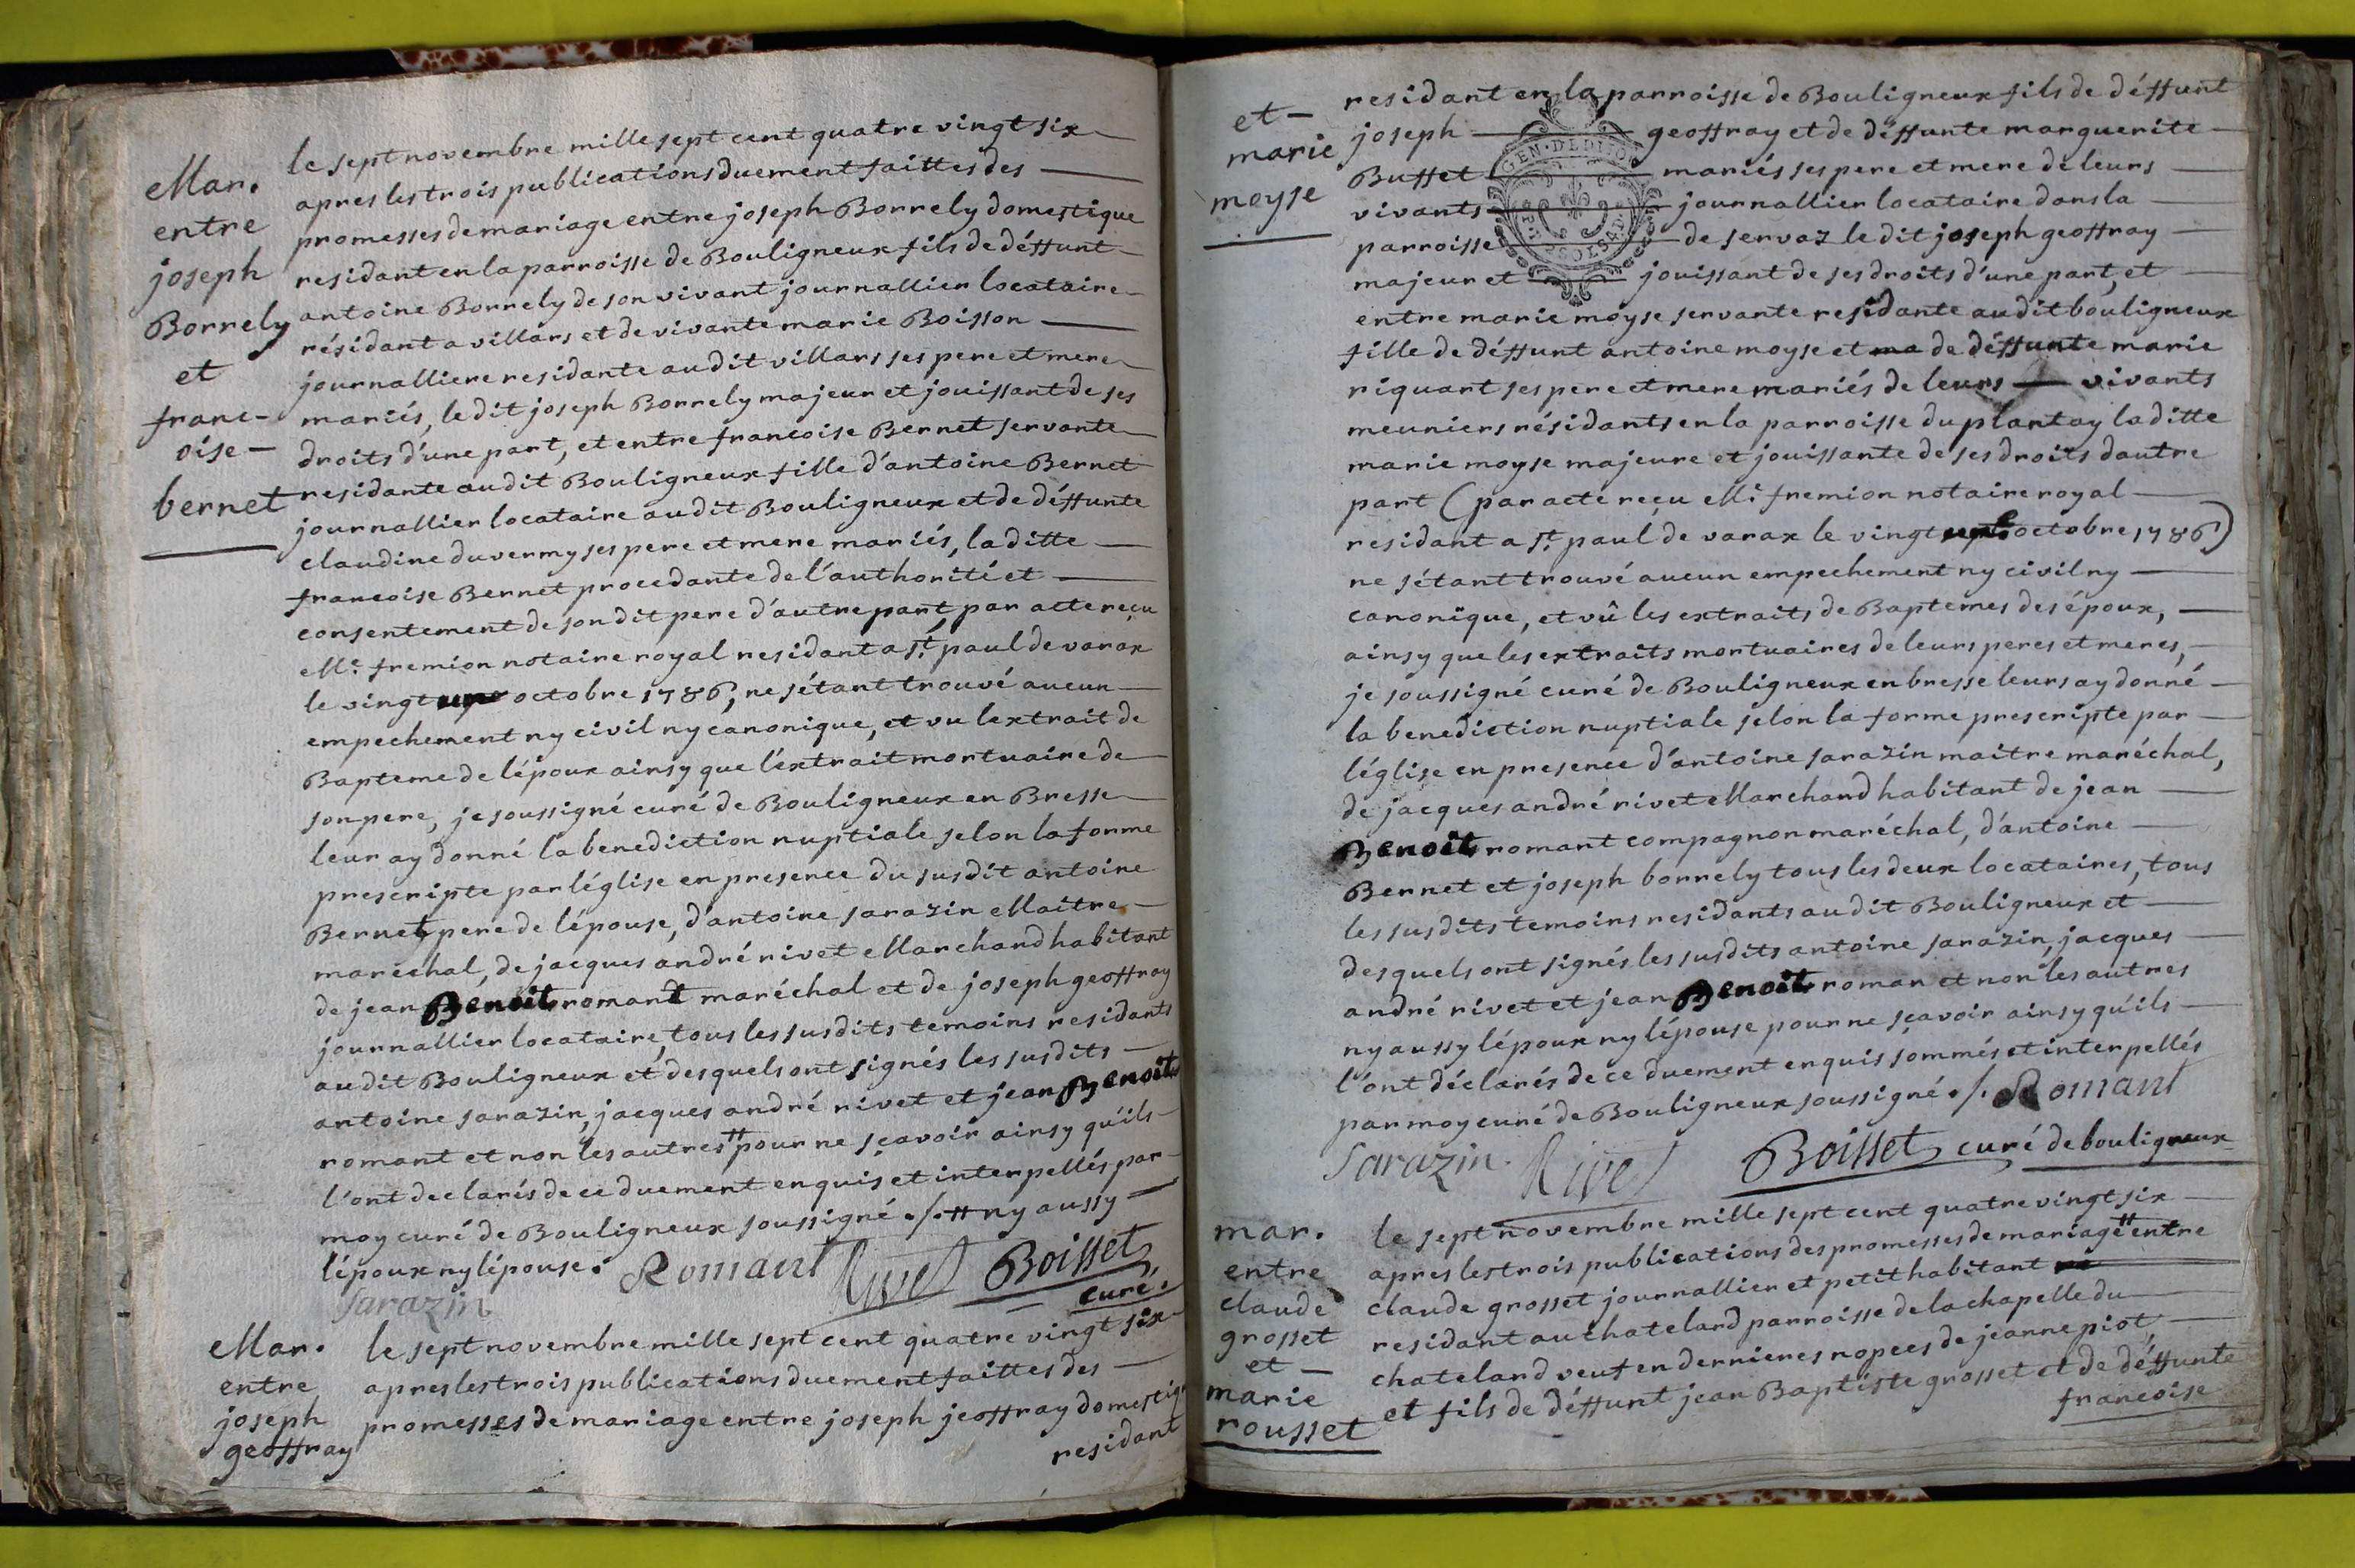 Mar.
entre
joseph
Borrely
et
franc-
oise -
bernet
le sept novembre mille sept cent quatre vingt six
apres les trois publications duement faittes des
promesses de mariage entre joseph Borrely domestique
residant en la parroisse de Bouligneux fils de déffunt
antoine Borrely de son vivant journallier locataire
résidant a villars et de vivante marie Boisson
journalliere residante audit villars ses pere et mere
mariés, le dit joseph Borrely majeur et jouissant de ses
droits d'une part, et entre francoise Bernet servante
residante audit Bouligneux fille d'antoine Bernet
journallier locataire audit Bouligneux et de déffunte
claudine duvermy ses pere et mere mariés, la ditte
francoise Bernet procedante de l'authorité et
consentement de son dit pere d'autre part, par acte reçu
Me. fremion notaire royal residant a st. paul de varax
le vingt octobre 1786, ne s'étant trouvé aucun
empechement ny civil ny canonique, et vu lextrait de
Bapteme de lépoux ainsy que l'extrait mortuaire de
son pere, je soussigné curé de Bouligneux en Bresse
leur ay donné la benediction nuptiale selon la forme
prescripte par léglise en presence du susdit antoine
Bernet pere de lépouse, d'antoine sarazin Maitre
maréchal, de jacques andré rivet Marchand habitant
de jean Benoit romant maréchal et de joseph geoffray
journallier locataire, tous les susdits temoins residants
audit Bouligneux et desquels ont signés les susdits
antoine sarazin, jacques andré rivet et jean Benoit
romant et non les autres # pour ne sçavoir ainsy qu'ils
l'ont declarés de ce duement enquis et interpellés par
moy curé de Bouligneux soussigné ./. # ny aussy
lépoux ny lépouse. Romant Rivet Boisset
curé.
Sarazin
Mar.
entre
joseph
geoffray
le sept novembre mille sept cent quatre vingt six
apres les trois publications duement faittes des
promesses de mariage entre joseph jeoffray domestiq
residant
et -
marie
moyse
residant en la parroisse de Bouligneux fils de déffunt
joseph geoffray et de déffunte marguerite
Buffet mariés ses pere et mere de leurs
vivants journallier locataire dans la
parroisse de servaz le dit joseph geoffray
majeur et jouissant de ses droits d'une part, et
GEN. DE DIJON
entre marie moyse servante residante audit bouligneux
fille de déffunt antoine moyse et ma de déffunte marie
riquant ses pere et mere mariés de leurs vivants
meuniers résidants en la parroisse du plantay laditte
marie moyse majeure et jouissante de ses droits dautre
part (par acte reçu Me. fremion notaire royal
residant a st. paul de varax le vingt octobre 1786)
ne s'étant trouvé aucun empechement ny civil ny
canonique, et vû les extraits de Baptemes des époux,
ainsy que les extraits mortuaires de leurs peres et meres,
je soussigné curé de Bouligneux en bresse leurs ay donné
la benediction nuptiale selon la forme prescripte par
léglise en presence d'antoine sarazin maitre maréchal,
de jacques andré rivet Marchand habitant de jean
Benoit romant compagnon maréchal, d'antoine
Bernet et joseph borrely tous les deux locataires, tous
les susdits temoins residants audit Bouligneux et
desquels ont signés les susdits antoine sarazin, jacques
andré rivet et jean Benoit roman et non les autres
ny aussy lépoux ny lépouse pour ne sçavoir ainsy qu'ils
l'ont déclarés de ce duement enquis sommés et interpellés
par moy curé de Bouligneux soussigné ./. Romant
Sarazin. Rivet Boisset curé de bouligneux
mar.
entre
claude
grosset
et -
marie
rousset
le sept novembre mille sept cent quatre vingt six
apres les trois publications des promesses de mariage # entre
claude grosset journallier et petit habitant
residant au chatelard parroisse de la chapelle du
chatelard veuf en dernieres nopces de jeanne piot,
et fils de déffunt jean Baptiste grosset et de déffunte
francoise